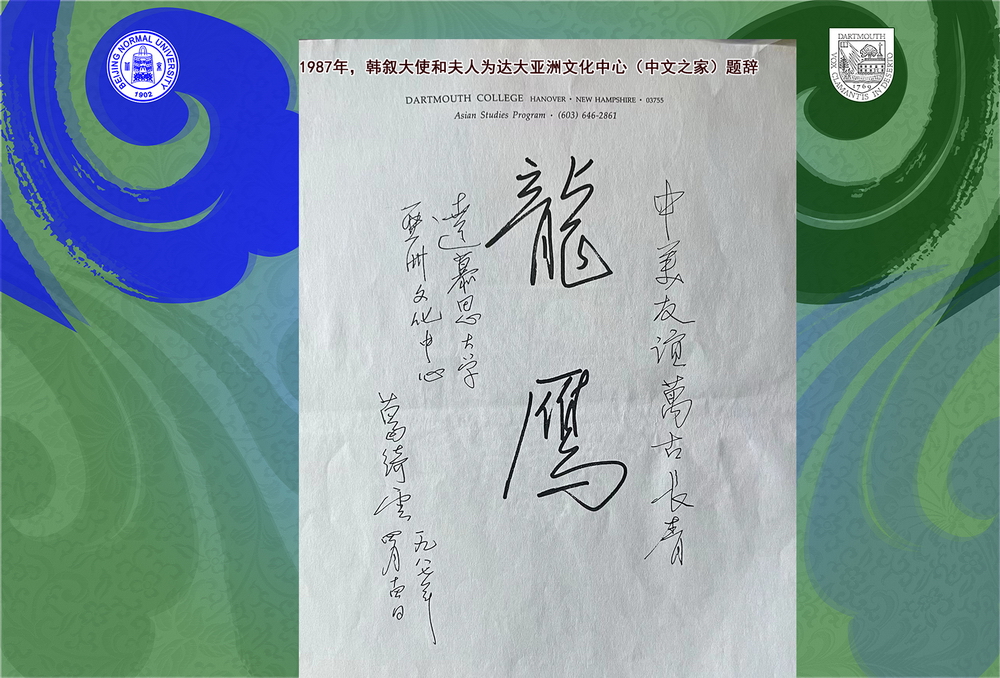 BEIJING NORMAL UNIVERSITY
1902
DARTMOUTH
VOX CLAMANTIS IN DESERTO
1769
1987年，韩叙大使和夫人为达大亚洲文化中心（中文之家）题辞
DARTMOUTH COLLEGE HANOVER • NEW HAMPSHIRE • 03755
Asian Studies Program • (603) 646-2861
中美友谊萬古長青
龍鹰
達慕思大学
亞州文化中心
葛綺雲
一九八七年
四月